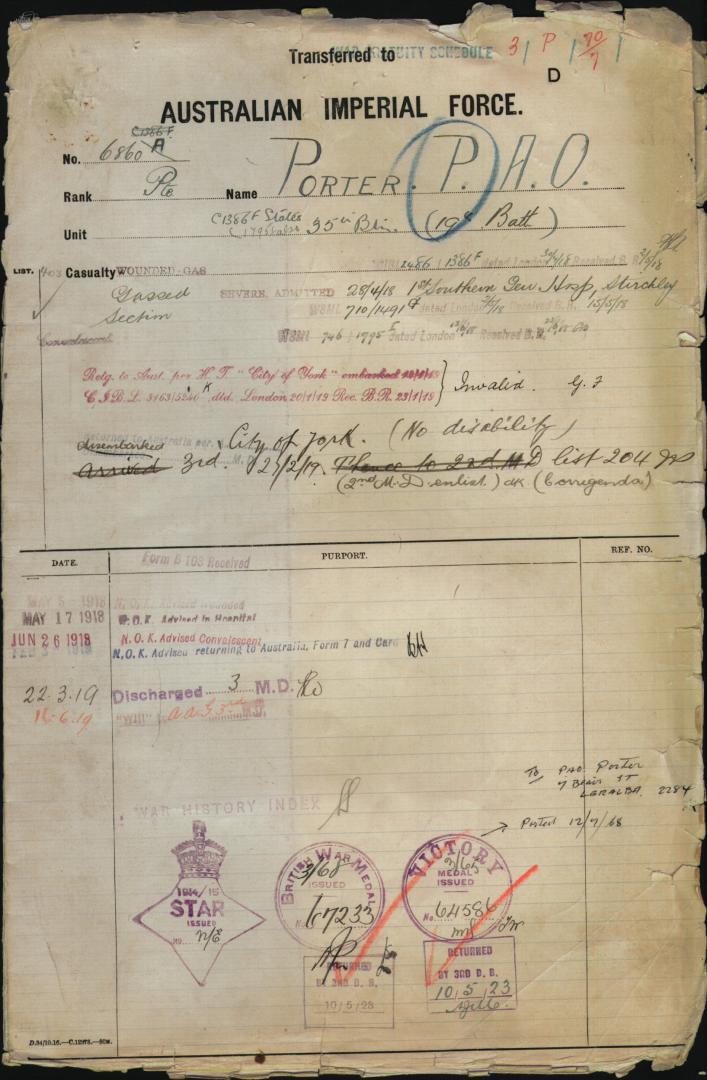 Transferred to WAR GRATUITY SCHEDULE 3 P 70/7
D
AUSTRALIAN IMPERIAL FORCE.
C1386F
No. 6860 A
Rank Pte Name PORTER. P. A. O.
C1386F States
Unit 35th Btn. (19th Batt)
W3ML 2486 1386F dated London 30/4/18 Received B.R. 2/5/18
LIST. 403 Casualty WOUNDED-GAS
Gassed SEVERE, ADMITTED 28/4/18 1st Southern Gen Hosp, Stirchley
Section W3ML 710/1491 dated London Received B.R. 15/5/18
Convalescent W3ML 746 1795F dated London Received B.R.
Retg. to Aust. per H.T. "City of York" embarked
C.I.B.L. 3163/5240 K dtd. London 20/1/19 Rec. B.R. 23/1/19 } Invalid. G. F
Returned to Australia per
disembarked City of York. (No disability)
arrived 3rd M.D. 27/2/19. Thence to 2nd M D list 204
(2nd M.D. enlist.) (Corrigenda)
DATE. PURPORT. REF. NO.
Form B 103 Received
MAY 5 - 1918 N.O.K. Advised Wounded
MAY 17 1918 N.O.K. Advised in Hospital
JUN 26 1918 N.O.K. Advised Convalescent
FEB 3 1919 N.O.K. Advised returning to Australia, Form 7 and Card
22.3.19 Discharged 3 M.D.
16.6.19 "Will" 3rd M.D.
To PAO Porter
7 Blair ST
2284
→ Posted 12/7/68
WAR HISTORY INDEX
1914/15 STAR ISSUED NO. N/E
BRITISH WAR MEDAL ISSUED 3/68 No. 67233
VICTORY MEDAL ISSUED No. 64586
RETURNED BY 3RD D. B. 10/5/23
RETURNED BY 3RD D. B. 10/5/23
D.34/10.16.—C.12673.—50M.